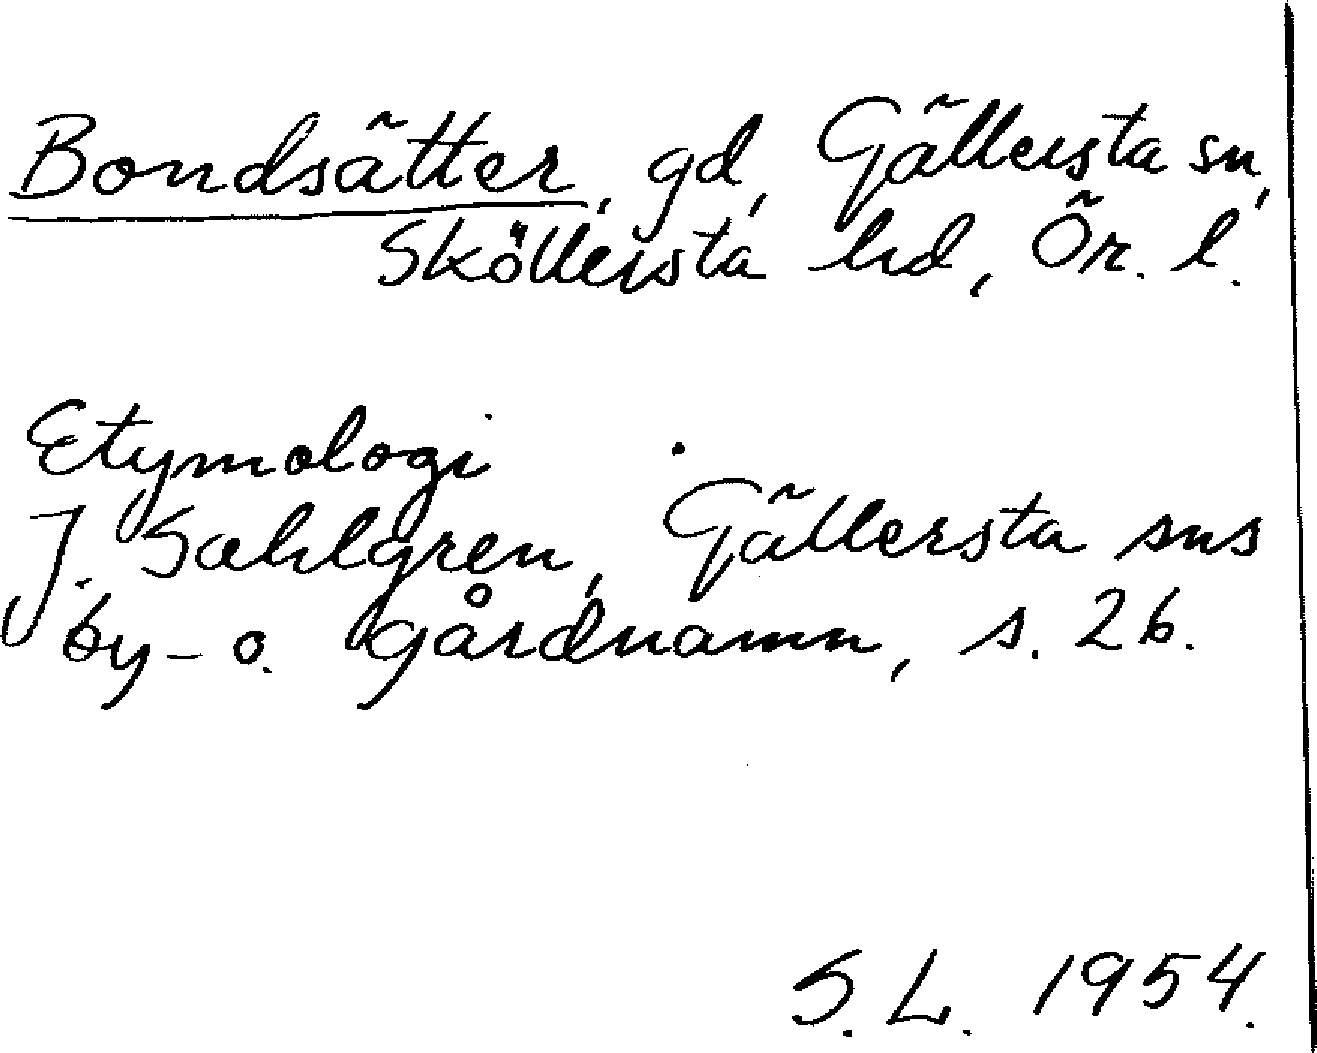 Bondsätter, gd, Gällersta sn,
Sköllersta hd, Ör. l.
Etymologi
J. Sahlgren, Gällersta sns
by- o. gårdnamn, s. 26.
S. L. 1954.